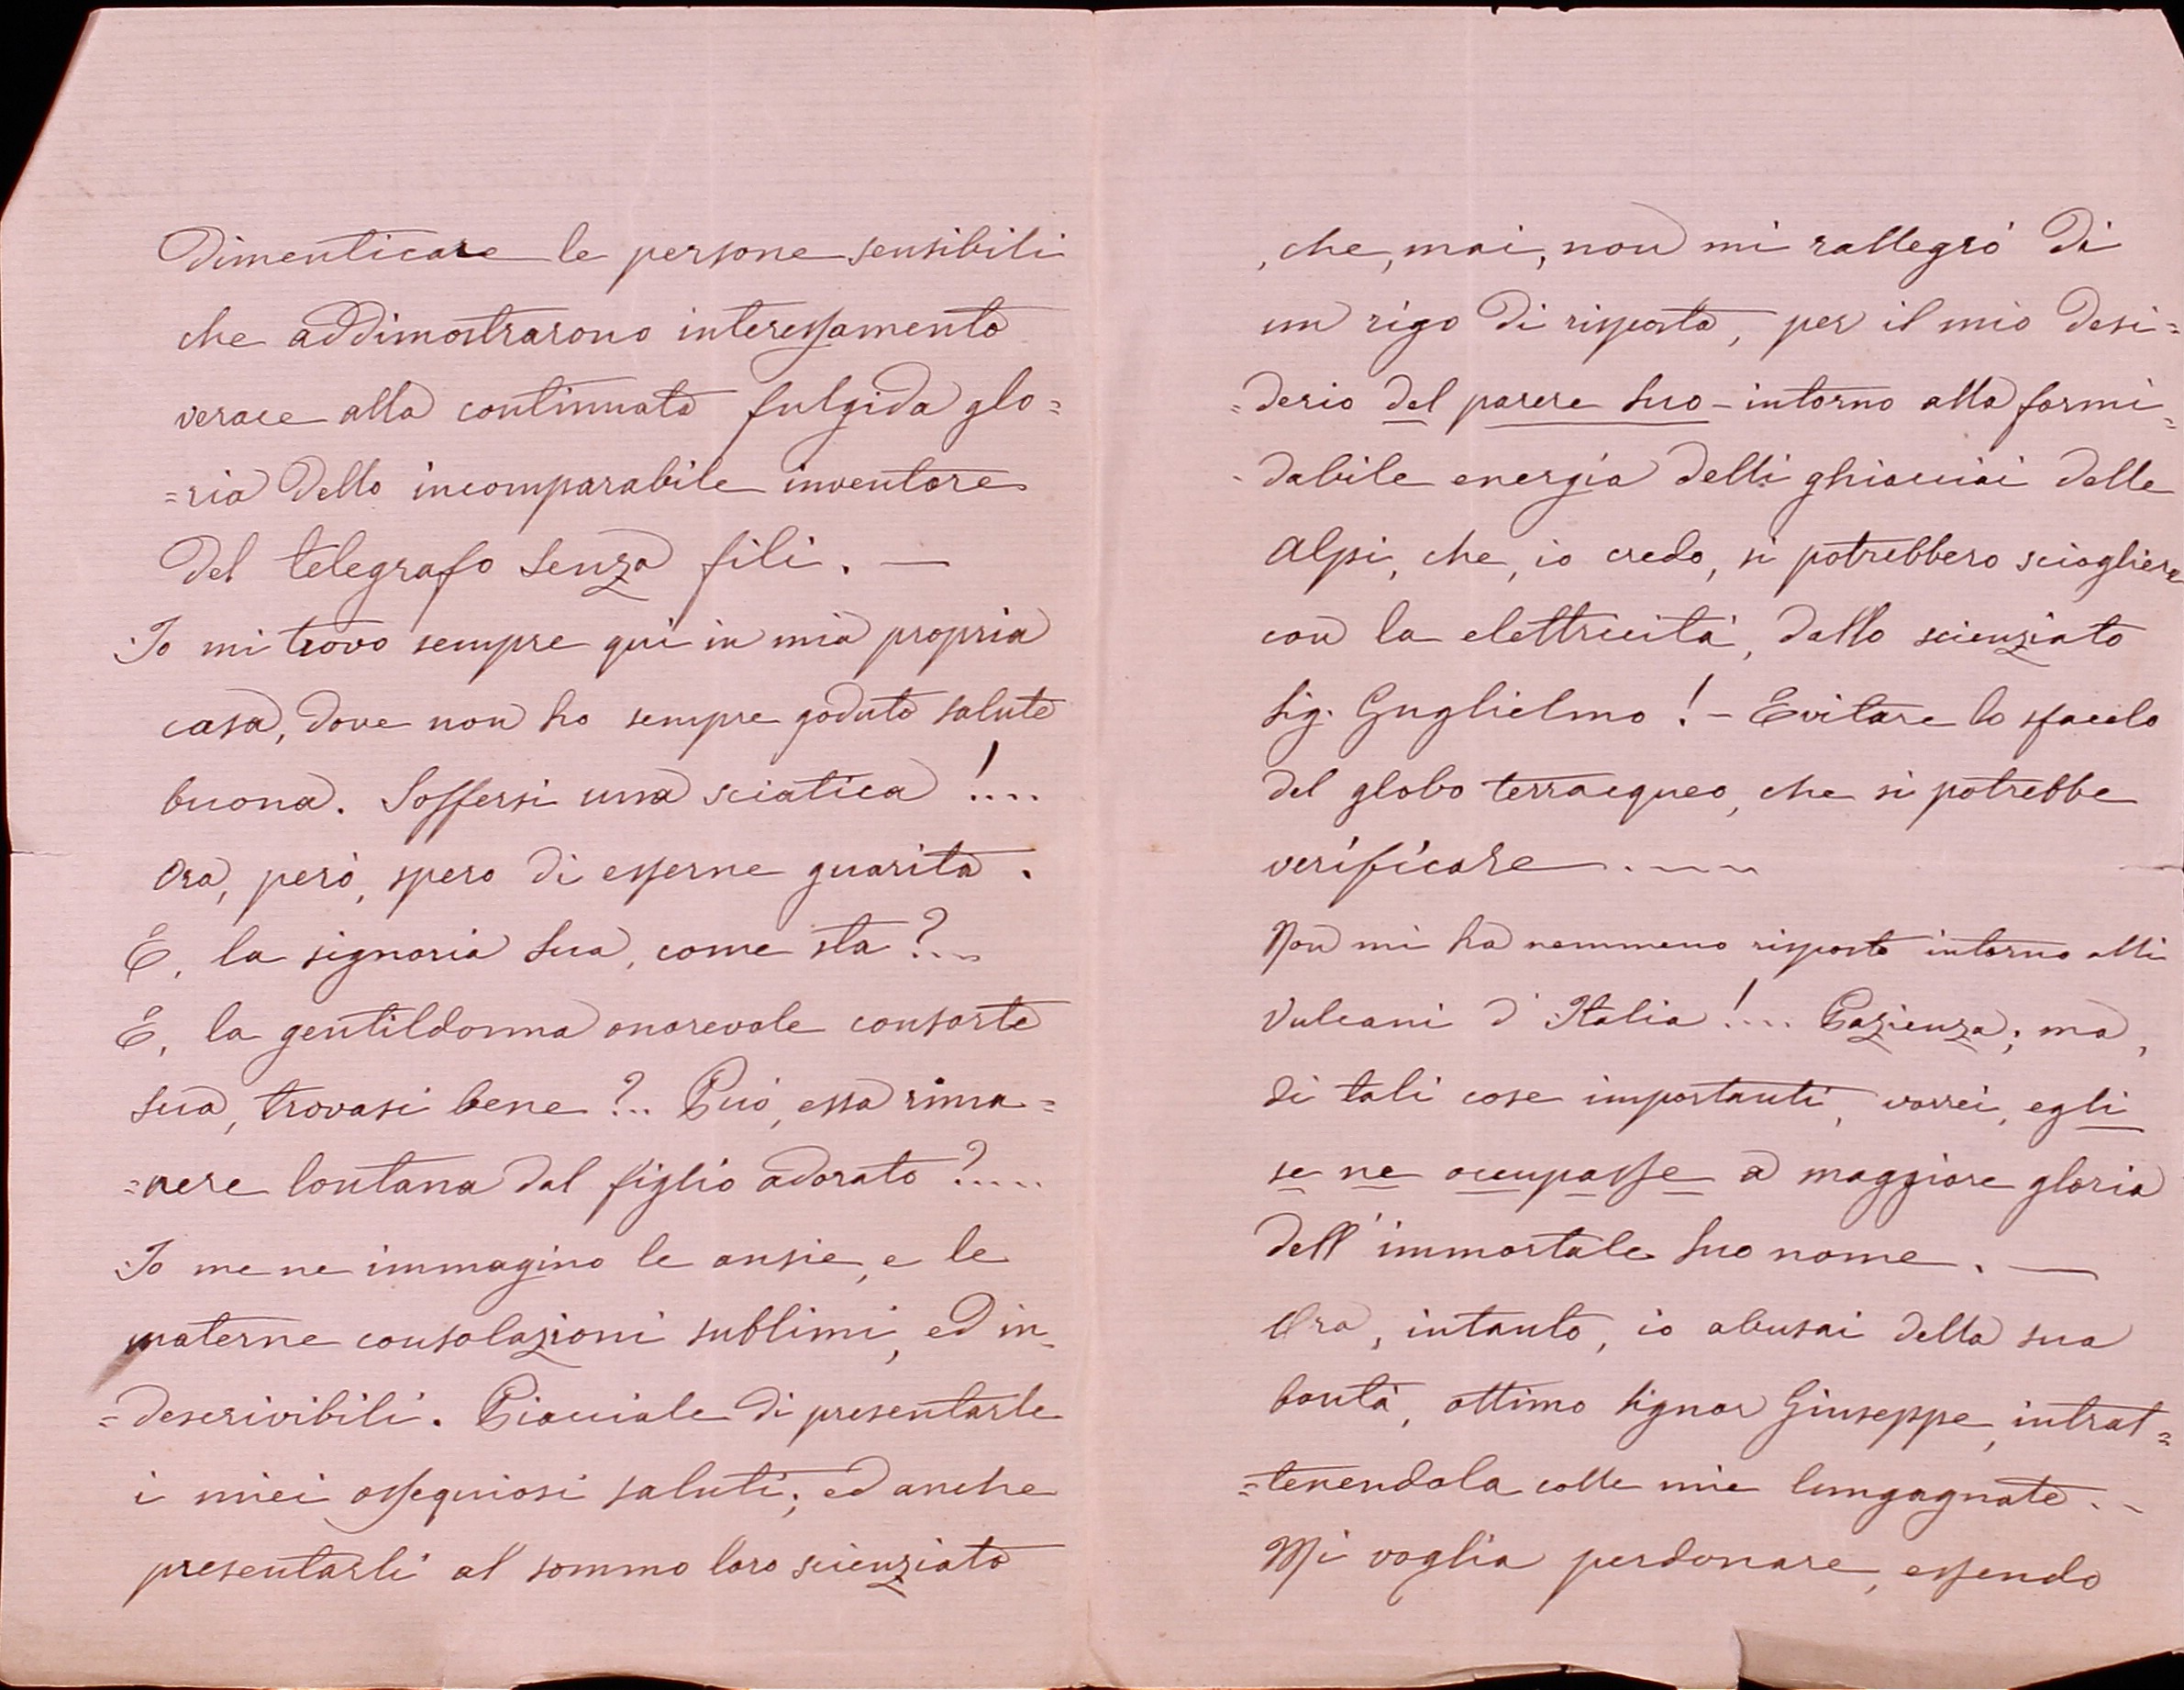 Dimenticare le persone sensibili
che addimostrarono interessamento
verace alla continuata fulgida glo=
=ria dello incomparabile inventore
del telegrafo senza fili. —
Io mi trovo sempre qui in mia propria
casa, dove non ho sempre goduto salute
buona. Soffersi una sciatica!....
Ora, però, spero di esserne guarita.
E, la signoria Sua, come sta?...
E, la gentildonna onorevole consorte
Sua, trovasi bene?.. Può, essa rima=
=nere lontana dal figlio adorato?.....
Io me ne immagino le ansie, e le
materne consolazioni sublimi, ed in=
=descrivibili. Piacciale di presentarle
i miei ossequiosi saluti; ed anche
presentarli al sommo loro scienziato
, che, mai, non mi rallegrò di
un rigo di risposta, per il mio desi=
=derio del parere Suo - intorno alla formi=
=dabile energia delli ghiacciai delle
Alpi, che, io credo, si potrebbero sciogliere
con la elettricità, dallo scienziato
Sig. Guglielmo! - Evitare lo sfacelo
del globo terracqueo, che si potrebbe
verificare....
Non mi ha nemmeno risposto intorno alli
Vulcani d'Italia!.... Pazienza; ma,
di tali cose importanti, vorrei, egli
se ne occupasse a maggiore gloria
dell'immortale Suo nome. —
Ora, intanto, io abusai della sua
bontà, ottimo Signor Giuseppe, intrat=
=tenendola colle mie lungagnate..
Mi voglia perdonare, essendo